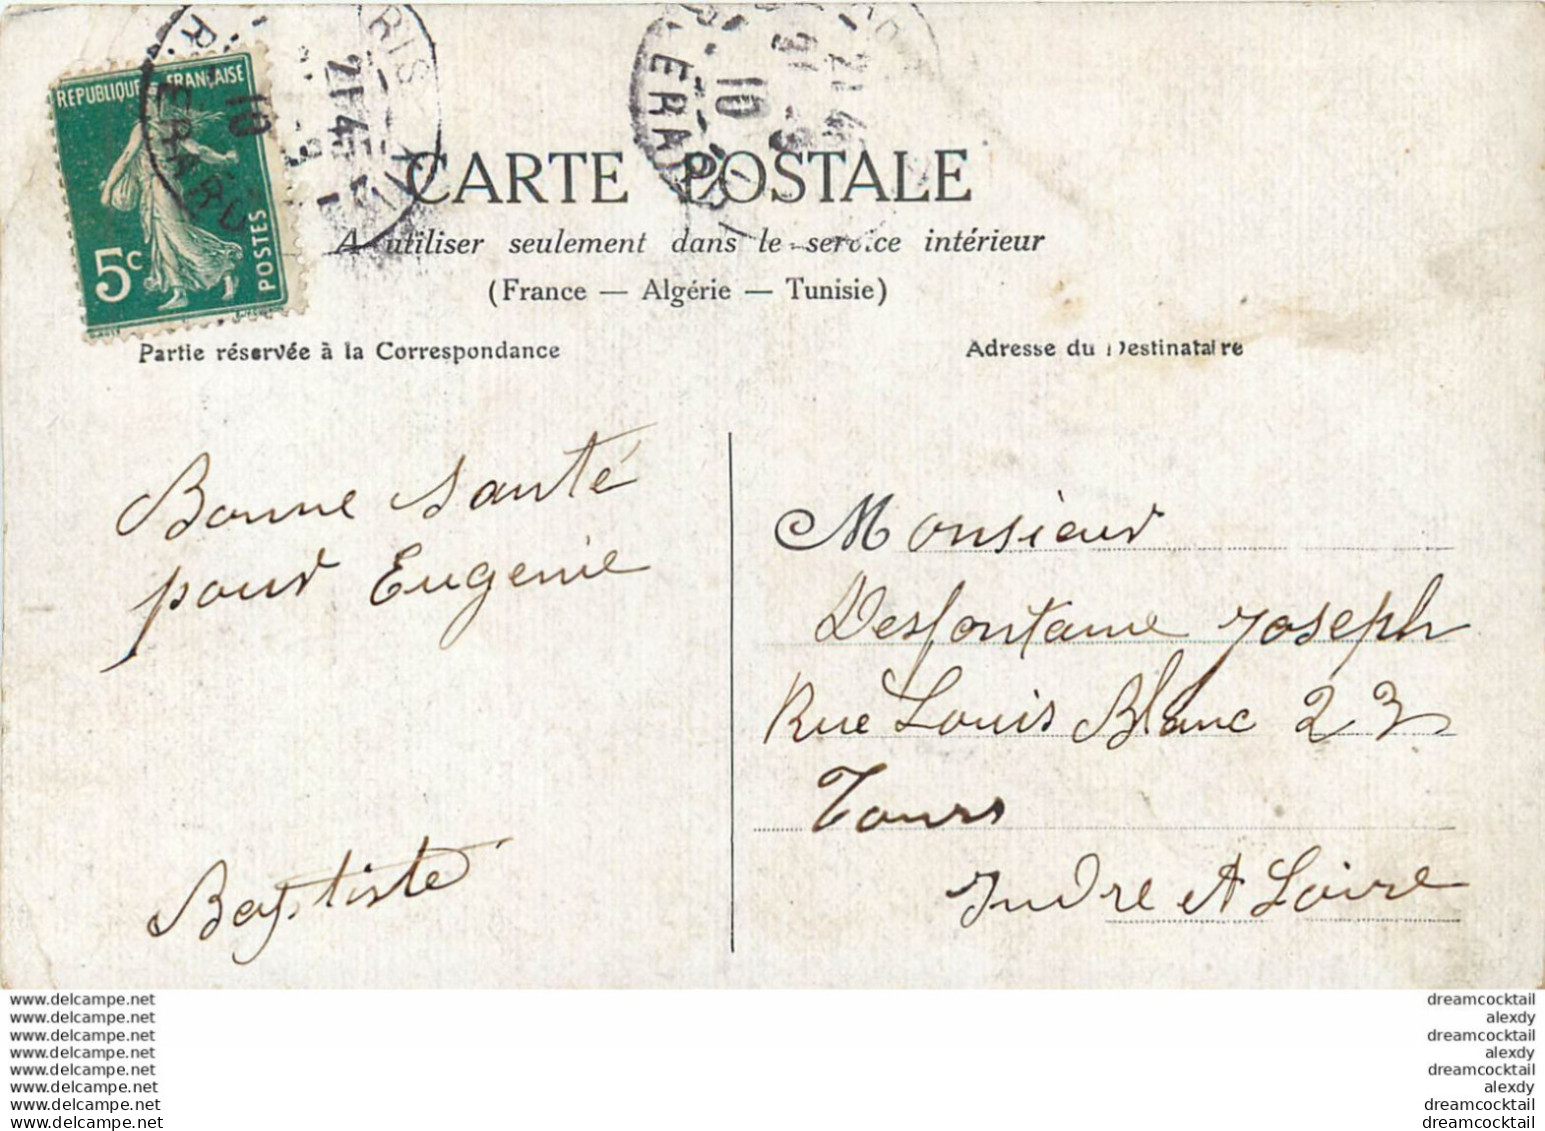 REPUBLIQUE FRANÇAISE
5c
POSTES
CARTE POSTALE
A utiliser seulement dans le service intérieur
(France — Algérie — Tunisie)
Partie réservée à la Correspondance
Adresse du Destinataire
Bonne santé
pour Eugenie
Baptiste
Monsieur
Desfontaine Joseph
Rue Louis Blanc 23
Tours
Indre et Loire
www.delcampe.net
www.delcampe.net
www.delcampe.net
www.delcampe.net
www.delcampe.net
www.delcampe.net
www.delcampe.net
www.delcampe.net
dreamcocktail
alexdy
dreamcocktail
alexdy
dreamcocktail
alexdy
dreamcocktail
dreamcocktail